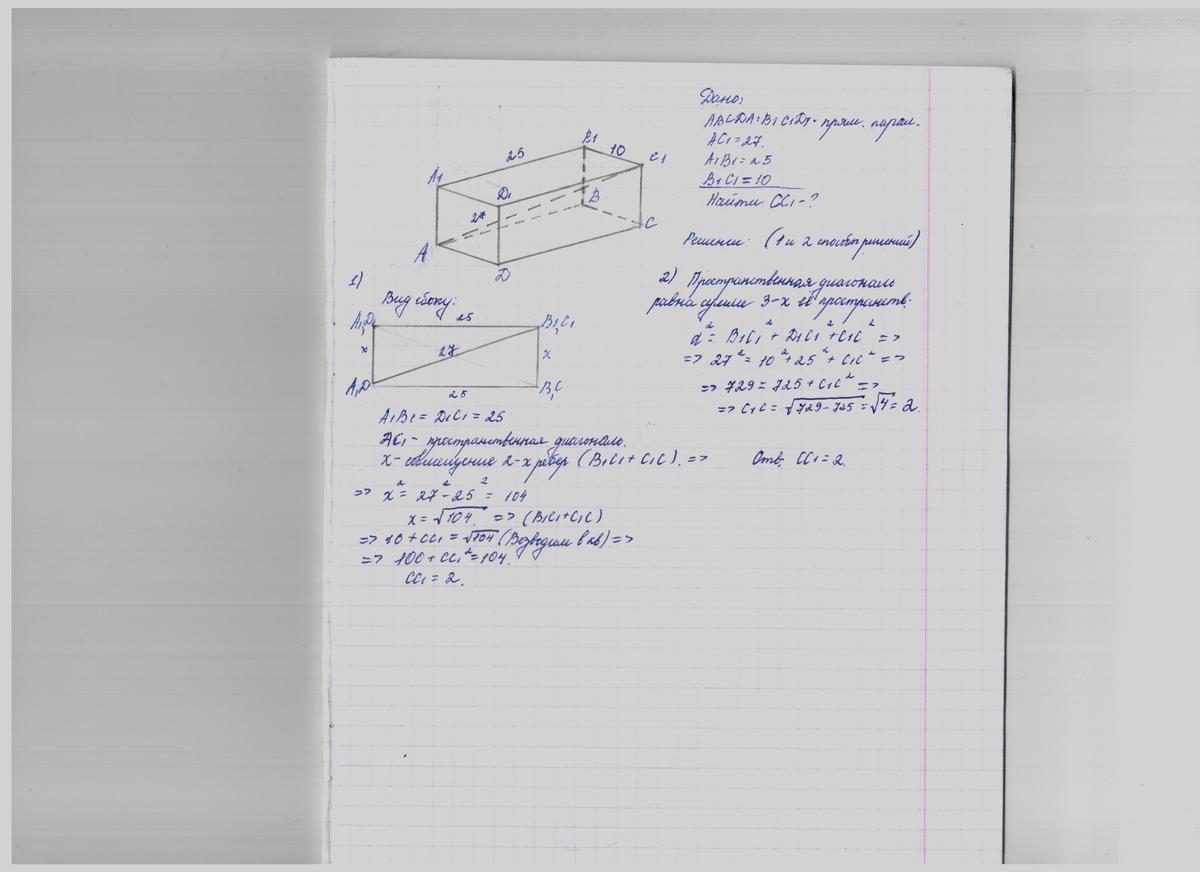 Дано:
ABCDA1B1C1D1 - прям. парал.
AC1 = 27.
A1B1 = 25
B1C1 = 10
Найти CC1 - ?
B1
10
25
C1
A1
D1
B
27
C
A
D
Решение: (1 и 2 способы решений)
1)
Вид сбоку:
A1,D1
25
B1,C1
x
27
x
A,D
B,C
25
A1B1 = D1C1 = 25
AC1 - пространственная диагональ.
x - совмещение 2-х рёбер (B1C1 + C1C). =>
=> x² = 27² - 25² = 104
x = √104. => (B1C1 + C1C)
=> 10 + CC1 = √104 (Возводим в кв) =>
=> 100 + CC1² = 104.
CC1 = 2.
2) Пространственная диагональ
равна сумме 3-х её пространств.
d² = B1C1² + D1C1² + C1C² =>
=> 27² = 10² + 25² + C1C² =>
=> 729 = 725 + C1C² =>
=> C1C = √729-725 = √4 = 2.
Отв. CC1 = 2.